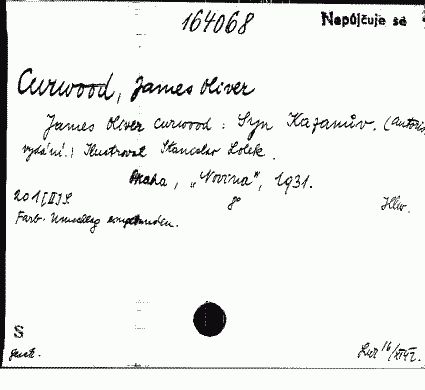 164068 Nepůjčuje se
Curwood, James Oliver
James Oliver Curwood: Syn Kazanův. (Autoris.
vydání.) Ilustroval Stanislav Lolek.
Praha, „Novina", 1931.
201 [II] S. 8° Illu.
Farb. Umschlag
S